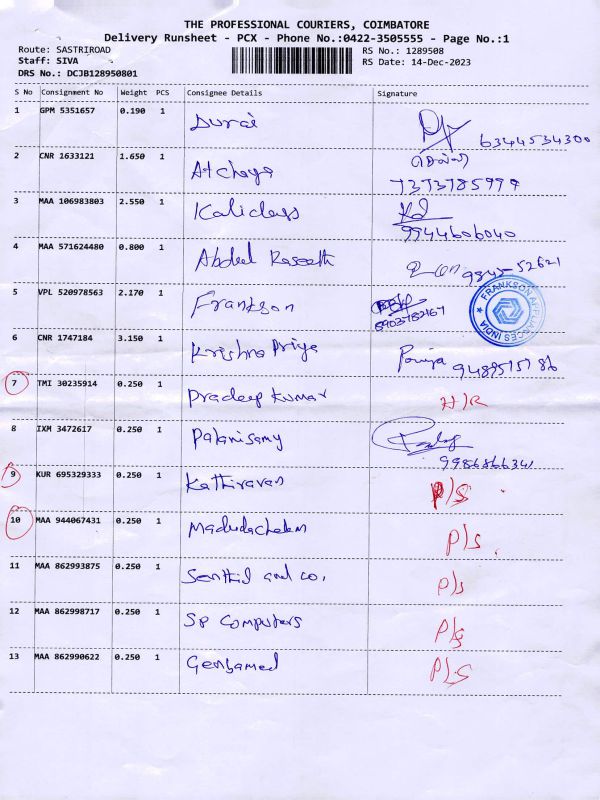 THE PROFESSIONAL COURIERS, COIMBATORE
Delivery Runsheet - PCX - Phone No.:0422-3505555 - Page No.:1
Route: SASTRIROAD
Staff: SIVA
DRS No.: DCJB128950801
RS No.: 1289508
RS Date: 14-Dec-2023
S No Consignment No Weight PCS Consignee Details Signature
1 GPM 5351657 0.190 1 Durai 6344534300
2 CNR 1633121 1.650 1 Atchaya
3 MAA 106983803 2.550 1 Kalidass
9944606040
4 MAA 571624480 0.800 1 Abdul
5 VPL 520978563 2.170 1 Frankson
8903782167
FRANKSON APPLIANCES INDIA
6 CNR 1747184 3.150 1 Krishna Priya
7 TMI 30235914 0.250 1 Pradeep Kumar H/R
8 IXM 3472617 0.250 1 Palanisamy
9986866341
9 KUR 695329333 0.250 1 Kathiravan P/S
10 MAA 944067431 0.250 1 P/S
11 MAA 862993875 0.250 1 Senthil and co, P/S
12 MAA 862998717 0.250 1 SP Computers P/S
13 MAA 862990622 0.250 1 P/S